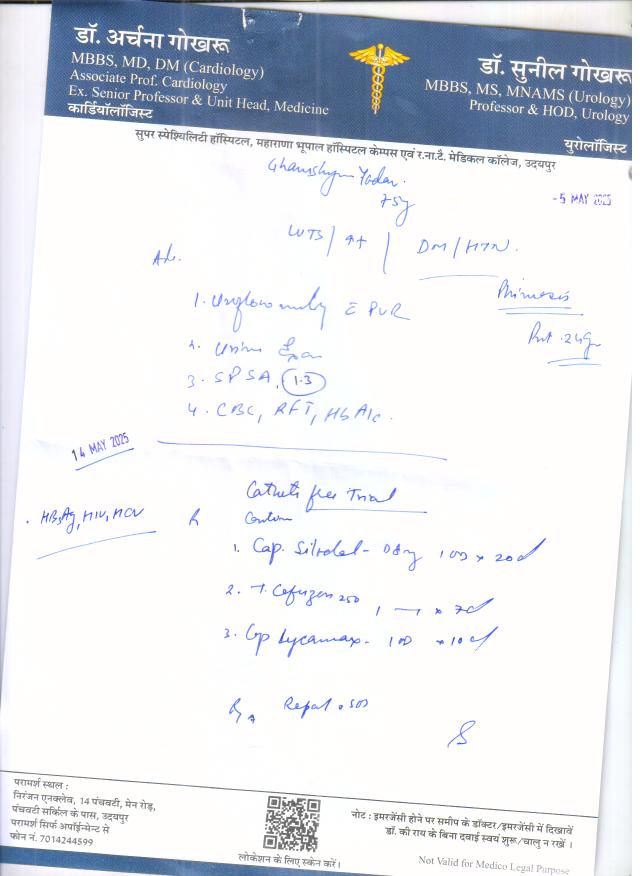 डॉ. अर्चना गोखरू
MBBS, MD, DM (Cardiology)
Associate Prof. Cardiology
Ex. Senior Professor & Unit Head, Medicine
कार्डियॉलॉजिस्ट
डॉ. सुनील गोखरू
MBBS, MS, MNAMS (Urology)
Professor & HOD, Urology
यूरोलॉजिस्ट
सुपर स्पेश्यिलिटी हॉस्पिटल, महाराणा भूपाल हॉस्पिटल केम्पस एवं र.ना.टै. मेडिकल कॉलेज, उदयपुर
Ghanshyam Yadav.
75y
-5 MAY 2025
LUTS / ++ / DM / HTN.
Adv.
Phimosis
1. Uroflowmetry PVR
Prost. 24g
2. Urine Exam
3. SPSA, 1.3
4. CBC, RFT, HbA1c.
14 MAY 2025
Catheter free Trial
HBsAg, HIV, HCV
Continue
1. Cap. Silodal - 08mg 1OD x 20d
2. T. Cefuzen 250 1 — 1 x 7d
3. Cap Lycamax - 1OD x 10d
Repat. SOS
परामर्श स्थल :
निरंजन एनक्लेव, 14 पंचवटी, मेन रोड़,
पंचवटी सर्किल के पास, उदयपुर
परामर्श सिर्फ अपॉईन्मेन्ट से
फोन नं. 7014244599
लोकेशन के लिए स्केन करें।
नोट : इमरजेंसी होने पर समीप के डॉक्टर/इमरजेंसी में दिखावें
डॉ. की राय के बिना दवाई स्वयं शुरू/चालु न रखें ।
Not Valid for Medico Legal Purpose